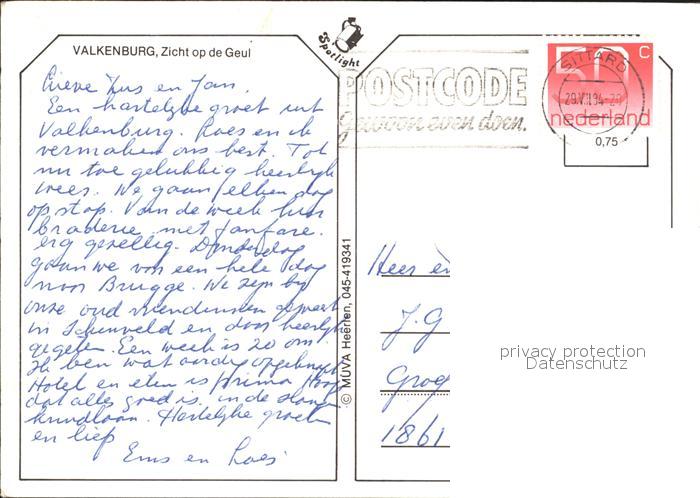 VALKENBURG, Zicht op de Geul
Spotlight
Lieve Zus en Jan.
Een hartelijke groet uit
Valkenburg. Loes en ik
vermaken ons best. Tot
nu toe gelukkig heerlijk
weer. We gaan elken dag
op stap. Van de week hier
braderie met fanfare.
erg gezellig. Donderdag
gaan we voor een hele dag
naar Brugge. We zijn bij
onze oud vriendinnen geweest
in Schinveld en daar heerlijk
gegeten. Een week is zo om.
Ik ben wat aardig opgeknapt
Hotel en eten is prima. Hoop
dat alles goed is. in de
Hartelijke groeten
en liefs
Loes
© MUVA Heerlen, 045-419341
POSTCODE
gewoon even doen.
SITTARD
50 C
nederland
0,75
Heer en
J.G
1861
privacy protection
Datenschutz